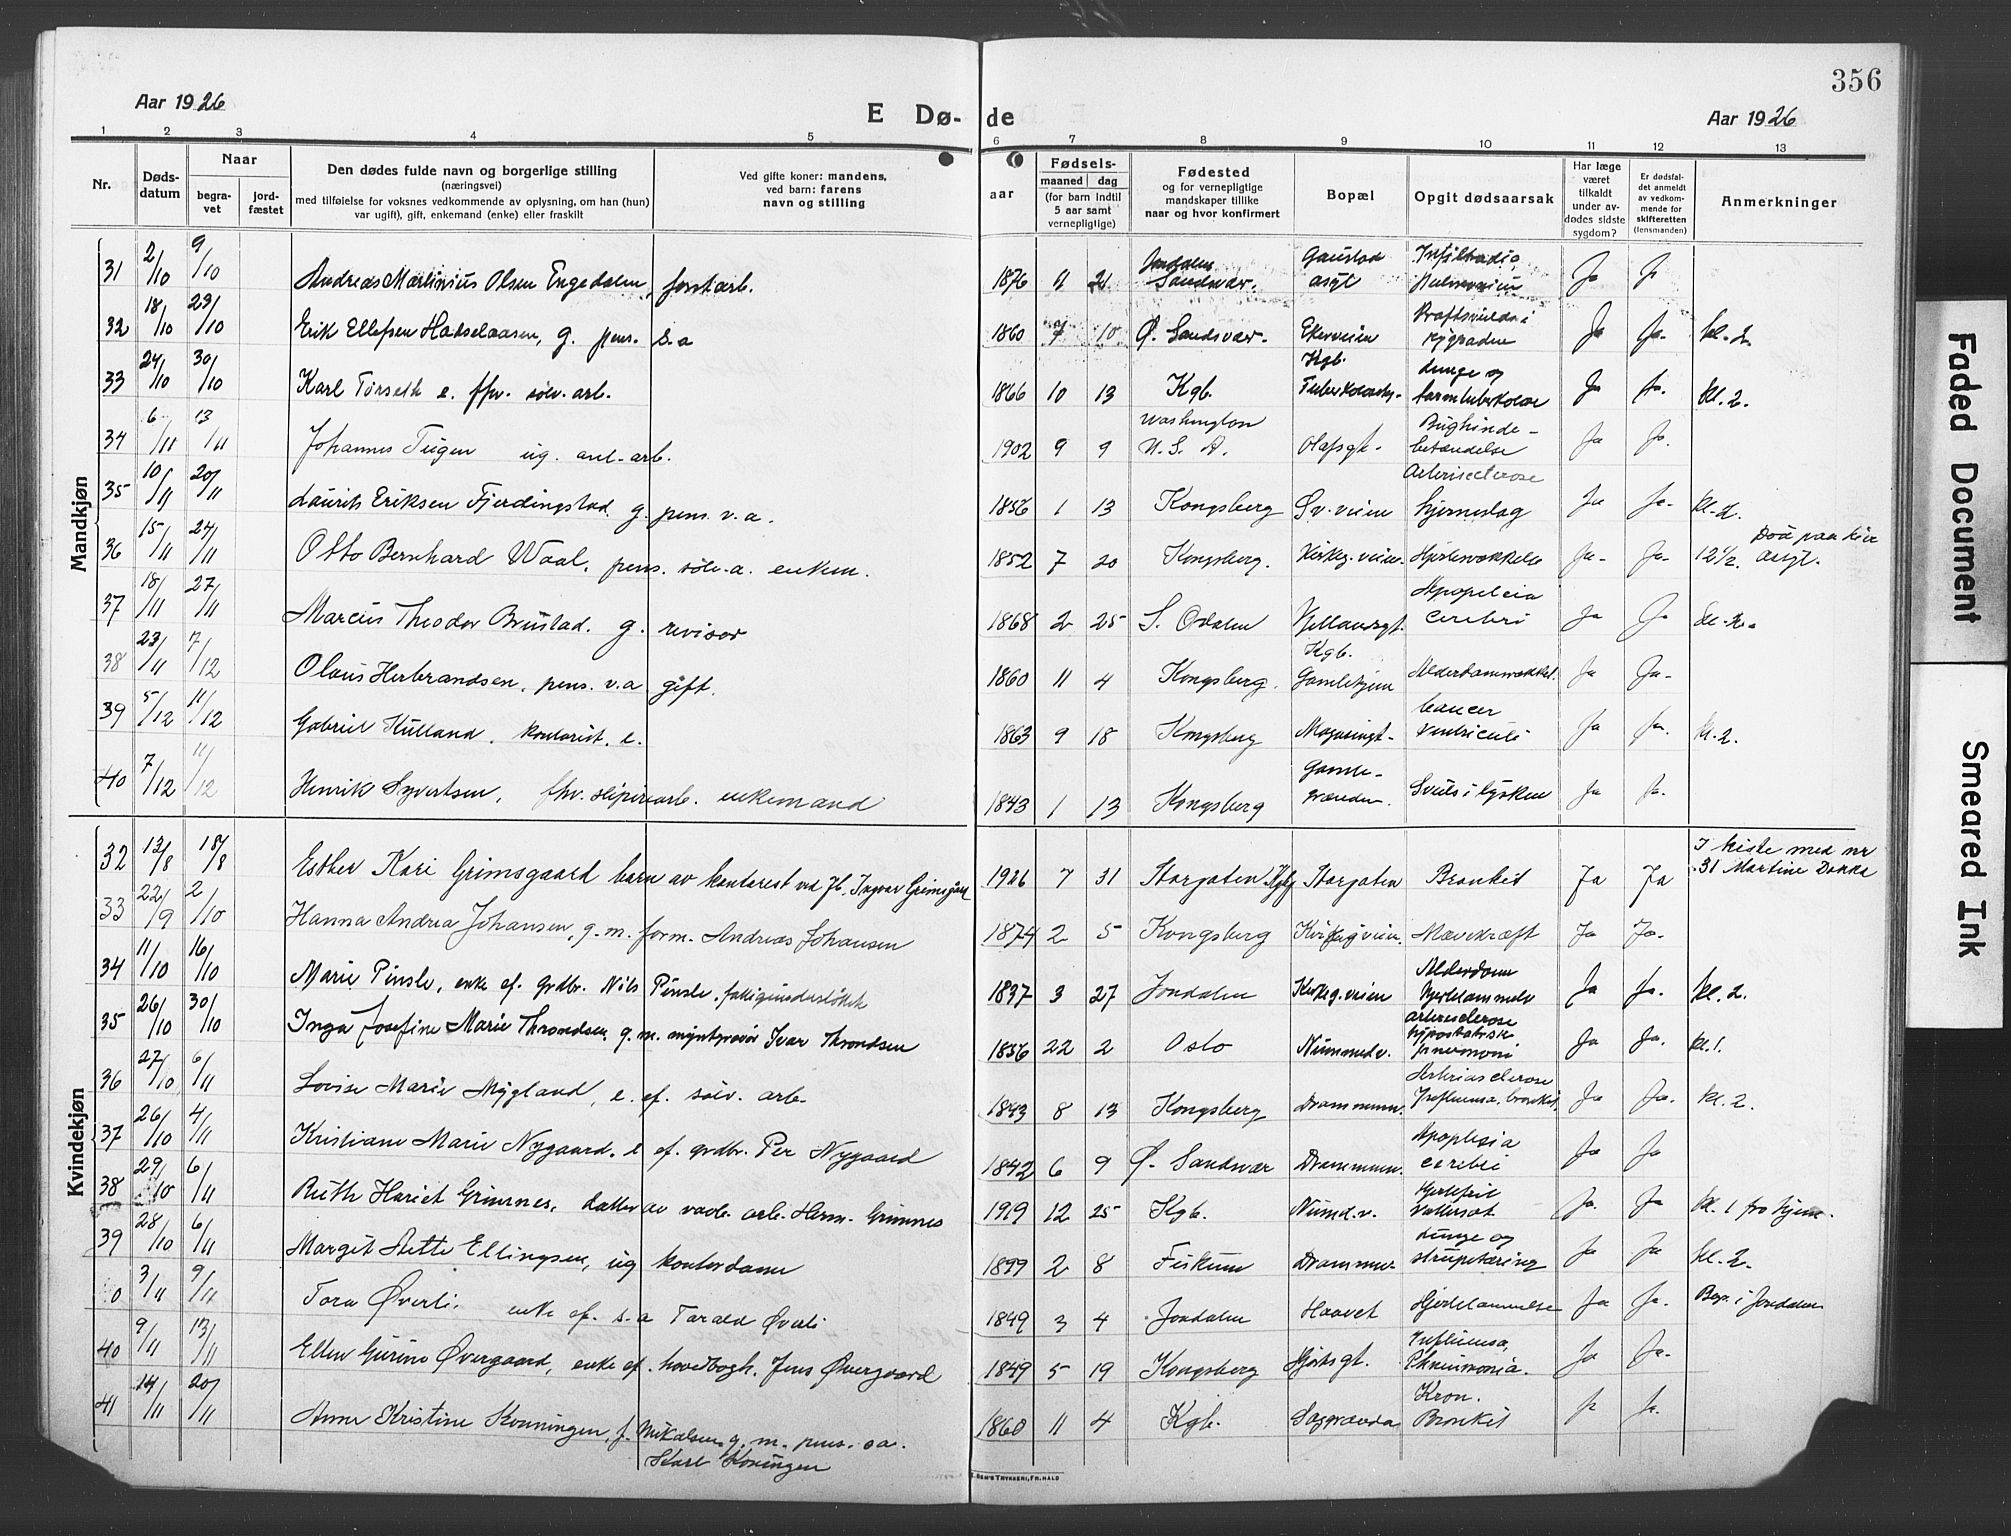 356
Aar 1926
E Dø-
de
Aar 1926
1 2 3 4 5 6 7 8 9 10 11 12 13
Nr.
Døds-
datum
Naar
begra-
vet
jord-
fæstet
Den dødes fulde navn og borgerlige stilling
(næringsvei)
med tilføielse for voksnes vedkommende av oplysning, om han (hun)
var ugift), gift, enkemand (enke) eller fraskilt
Ved gifte koner: mandens,
ved barn: farens
navn og stilling
aar
Fødsels-
maaned dag
(for barn indtil
5 aar samt
vernepligtige)
Fødested
og for vernepligtige
mandskaper tillike
naar og hvor konfirmert
Bopæl
Opgit dødsaarsak
Har læge
været
tilkaldt
under av-
dødes sidste
sygdom?
Er dødsfal-
det anmeldt
av vedkom-
mende for
skifteretten
(lensmanden)
Anmerkninger
Mandkjøn
31 2/10 9/10 Andreas Martinius Olsen Engedalen, forstarb. 1876 Jondalen Sandsvær. Gaustad asyl Ja
32 18/10 23/10 Erik Ellefsen Hadselaasen, g. pens. s.a 1860 7 10 Ø. Sandsvær. Ekerveien rygraden Ja Ja. kl. 2.
33 24/10 30/10 Karl Torseth e. fhv. sølv. arb. 1866 10 13 Kgb. Kgb. Lunge og tarmtuberkulose Ja Ja. kl. 2.
34 6/11 13/11 Johannes Tugen ug. anl. arb. 1902 9 9 Washington U.S.A. Olafsgt. Bughinde-betændelse Ja Ja.
35 10/11 20/11 Laurits Eriksen Fjerdingstad g. pens. v.a. 1856 1 13 Kongsberg Sv. veien Arteriesclerose hjerneslag Ja Ja. kl. 2.
36 15/11 24/11 Otto Bernhard Waal, pens. sølv. a. enkem. 1852 7 20 Kongsberg. Kirkeg. veien Hjertesvækkelse Ja. Ja. 12 1/2. Død paa
37 18/11 27/11 Marcus Theodor Brustad. g. revisor 1868 2 25 S. Odalen Hyllandsgt. Kgb. Apoplexia cerebri Ja Ja kl. 2.
38 23/11 7/12 Olaus Herbrandsen, pens. v.a gift. 1860 11 4 Kongsberg. Gamlehjem Alderdomssvækkel. Ja Ja.
39 5/12 11/12 Gabriel Hulland, kontorist, e. 1863 9 18 Kongsberg Magasingt. Cancer Ventriculi Ja Ja. kl. 2.
40 7/12 11/12 Henrik Syvertsen, fhv. sliperiarb. enkemand 1843 1 13 Kongsberg Gamle-grænden. Svuls i Ja Ja.
Kvindekjøn
32 13/8 18/8 Esther Kari Grimsgaard barn av kontorist ved Jb. Ingvar Grimsgaard 1926 7 31 Storgaten Kgbg Storgaten Bronkit Ja Ja I kiste med nr 31 Martine Dokka
33 22/9 2/10 Hanna Andrea Johansen, g. m. form. Andreas Johansen 1874 2 5 Kongsberg Kirkegveien. Mavekræft Ja Ja.
34 11/10 16/10 Marie Pinsle, enke ef. grdbr. Nils Pinsle, fattigunderstøttet 1837 3 27 Jondalen Kirkeg. veien Alderdom Hjertelammelse Ja Ja. kl. 2.
35 26/10 30/10 Inga Josefine Marie Throndsen, g. m. myntgravør Ivar Throndsen 1856 22 2 Oslo Nummedv. arteriesclerose hypostatisk pneumoni Ja Ja. kl. 1.
36 27/10 6/11 Lovise Marie Mygland, e. ef. sølv. arb. 1843 8 13 Kongsberg Drammenv. Arteriesclerose Influensa, bronkit, Ja Ja. kl. 2.
37 26/10 4/11 Kristiane Marie Nygaard, e ef. grdbr. Per Nygaard 1842 6 9 Ø. Sandsvær Drammenv. Apoplexia cerebri Ja Ja
38 29/10 6/11 Ruth Hariet Grimnes, datter av arb. Herm. Grimnes 1919 12 25 Kgb. Numd.v. Hjertefeil Vattersot Ja. Ja kl. 1 fra hjem.
39 28/10 6/11 Margit Mette Ellingsen, ug kontordame 1899 2 8 Fiskum Drammev. Lunge og strupetæring Ja Ja kl. 2.
0 3/11 9/11 Tora Øverli. enke ef. s.a Tarald Øverli 1849 3 4 Jondalen Haavet Hjertelammelse Ja Ja. Beg. i Jondalen
40 9/11 13/11 Ellen Gurine Øvergaard, enke ef. hovedbogh. Jens Øvergaard 1849 5 19 Kongsberg Hjortsgt. Influensa, Pneumonia. Ja Ja.
41 14/11 20/11 Anne Kristine Konningen, f. Mikalsen g. m. pens. s.a. 1860 11 4 Kgb. Saggrenda Kron. Bronkit Ja Ja.
Karl Koningen
TRYKKERI, FR.HALD
Faded Document
Smeared Ink